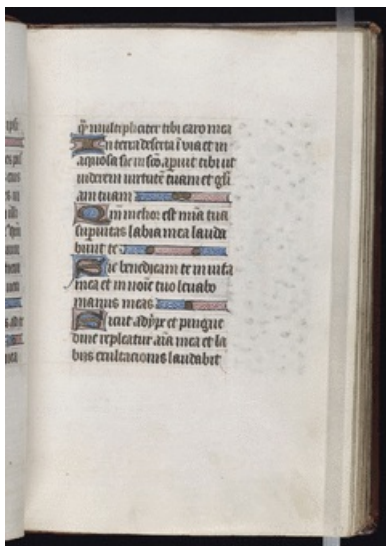 q̄ multipliciter tibi caro mea
In terra deserta ī via et in
aquosa sic in sc̄o apparui tibi ut
viderem virtutē tuam et gl̄i
am tuam
Qm̄ melior est mīa tua
sup vitas labia mea lauda
bunt te
Sic benedicam te in vita
mea et in noīe tuo levabo
manus meas
Sicut adipe et pingue
dine repleatur aīa mea et la
biis exultationis laudabit